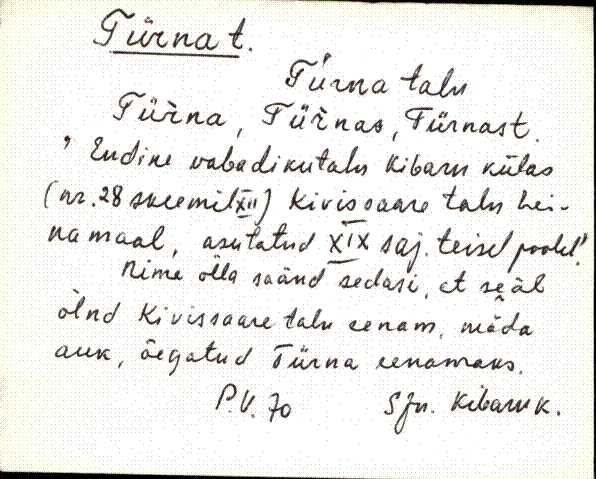 Türna t.
Türna talu
Türna, Türnas, Türnast.
" Endine vabadikutalu Kibaru külas
(nr. 28 skeemil XII) Kivissaare talu hei-
namaal, asutatud XIX saj. teisel poolel".
Nime õlla saand sedasi, et seäl
õlnd Kivissaare talu eenam, mäda
auk, õegatud Türna eenamaks.
P.V. 70 SJn. Kibaru k.